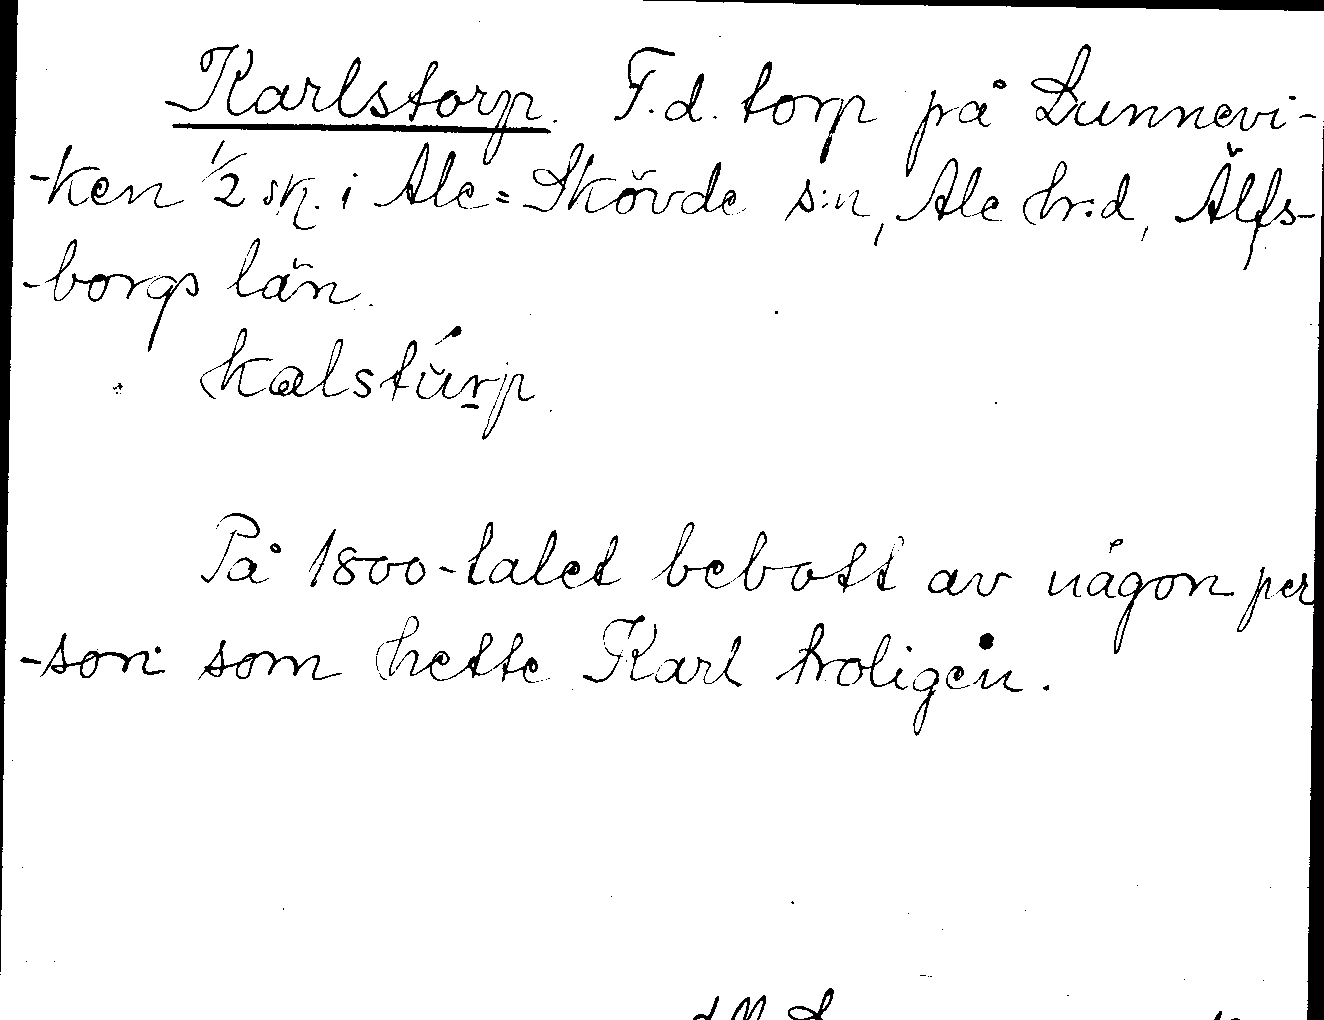 Karlstorp. F.d. torp på Lunnevi-
-ken 1/2 sk. i Ale=Skövde s:n, Ale hr:d, Älfs-
-borgs län.
kalstùrp
På 1800-talet bebott av någon per
-son som hette Karl troligen.